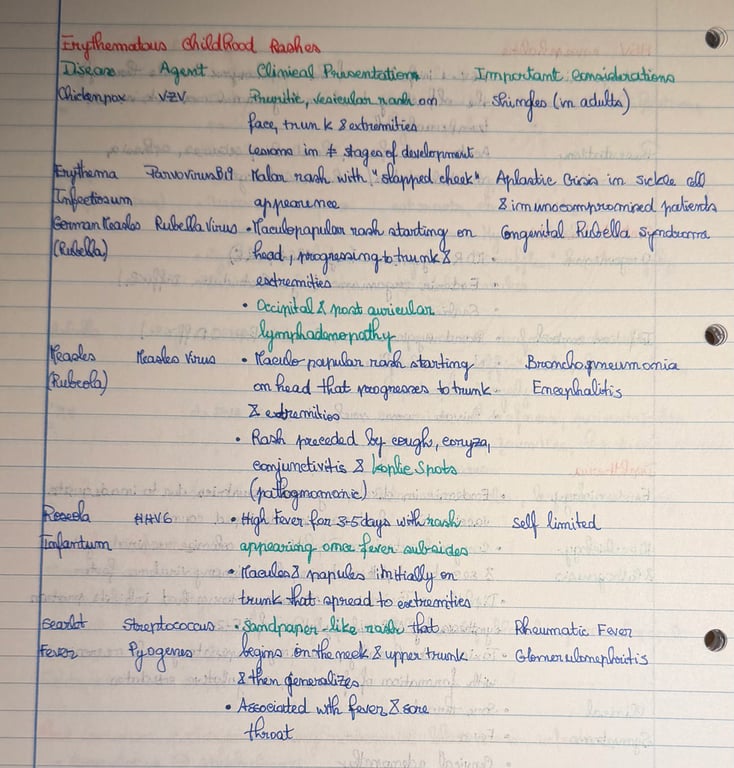 Erythematous Childhood Rashes
Disease Agent Clinical Presentation Important Considerations
Chickenpox VZV Pruritic, vesicular rash on Shingles (in adults)
face, trunk & extremities
Lesions in ≠ stages of development
Erythema Parvovirus B19 Malar rash with "slapped cheek" Aplastic Crisis in sickle cell
Infectiosum appearence & imunocompromised patients
German Measles Rubella Virus • Maculopapular rash starting on Congenital Rubella Syndrome
(Rubella) head, progressing to trunk &
extremities
• Occipital & post auricular
lymphadenopathy
Measles Measles Virus • Maculo papular rash starting Bronchopneumonia
(Rubeola) on head that progresses to trunk Encephalitis
& extremities
• Rash preceded by cough, coryza,
conjunctivitis & koplic spots
(pathogmomonic)
Roseola HHV6 • High Fever for 3-5 days with rash self limited
Infantum appearing once fever subsides
• Macules & papules initially on
trunk that spread to extremities
Scarlet Streptococcus • Sandpaper-like rash that Rheumatic Fever
Fever Pyogenes begins on the neck & upper trunk Glomerulonephritis
& then generalizes
• Associated with fever & sore
throat